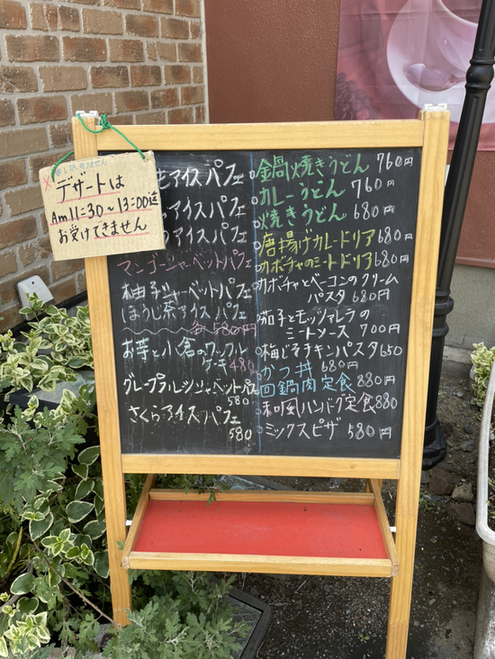 デザートは
Am11:30~13:00迄
お受けできません
アイスパフェ
アイスパフェ
アイスパフェ
マンゴーシャーベットパフェ
柚子シャーベットパフェ
ほうじ茶アイスパフェ
各580円
お芋と小倉のワッフル
ケーキ480
グレープ
580
さくらアイスパフェ
580
鍋焼きうどん 760円
カレーうどん 760円
焼きうどん 680円
唐揚げカレードリア680円
カボチャのミートドリア680円
カボチャとベーコンのクリーム
パスタ 680円
茄子とモッツァレラの
ミートソース 700円
梅じそチキンパスタ650
かつ丼 680円
回鍋肉定食 880円
和風ハンバーグ定食880
ミックスピザ 580円